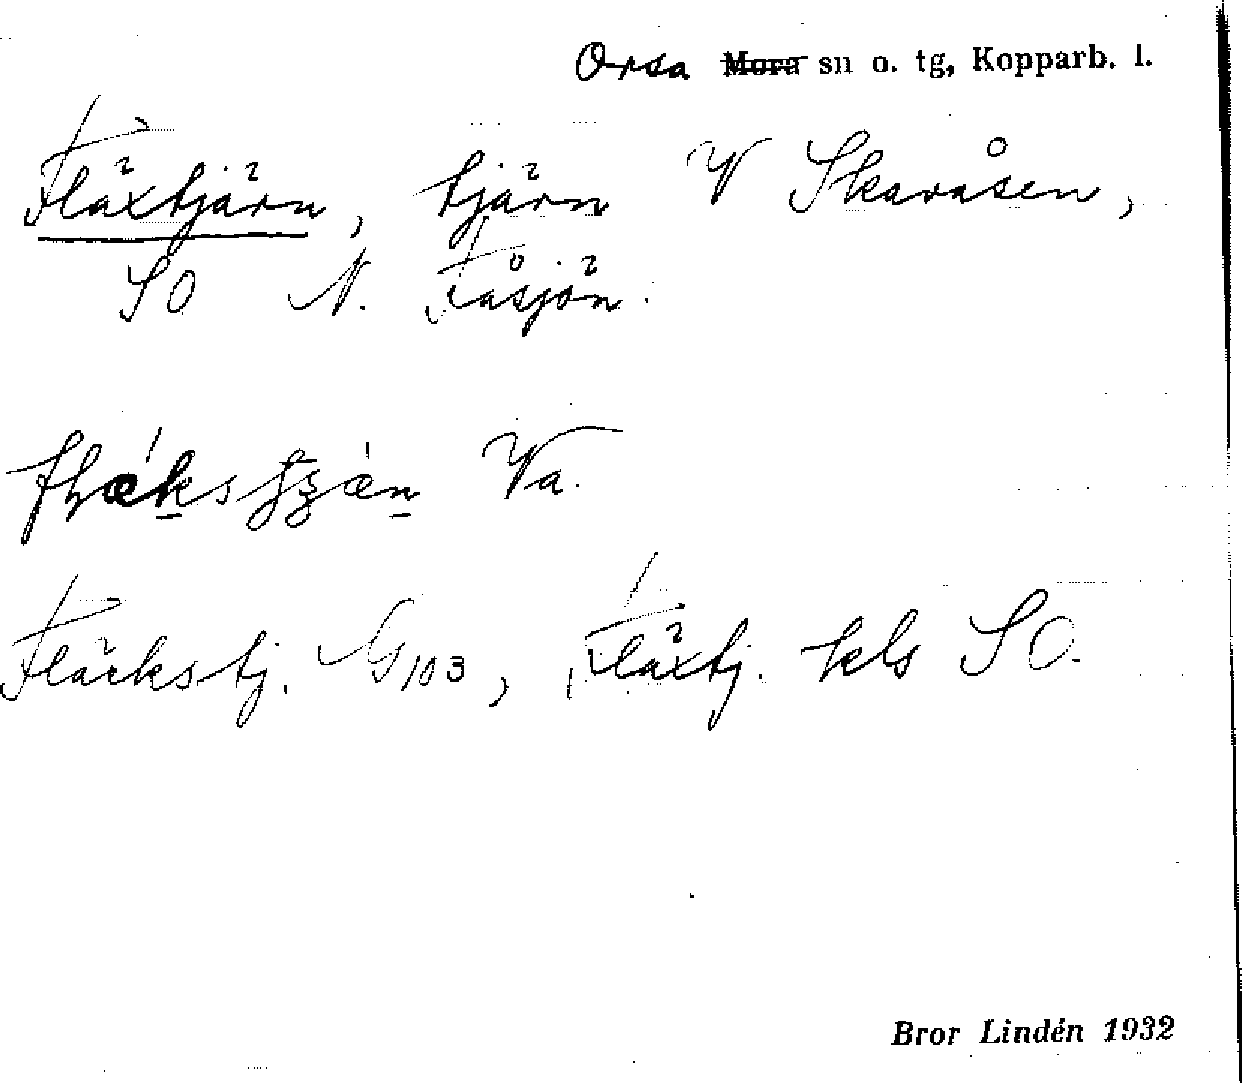 Orsa Mora sn o. tg, Kopparb. l.
Fläxtjärn, tjärn V Skavåsen,
SO N. Fåsjön.
Va.
Fläckstj. NG 103, Fläxtj. kls SO.
Bror Lindén 1932